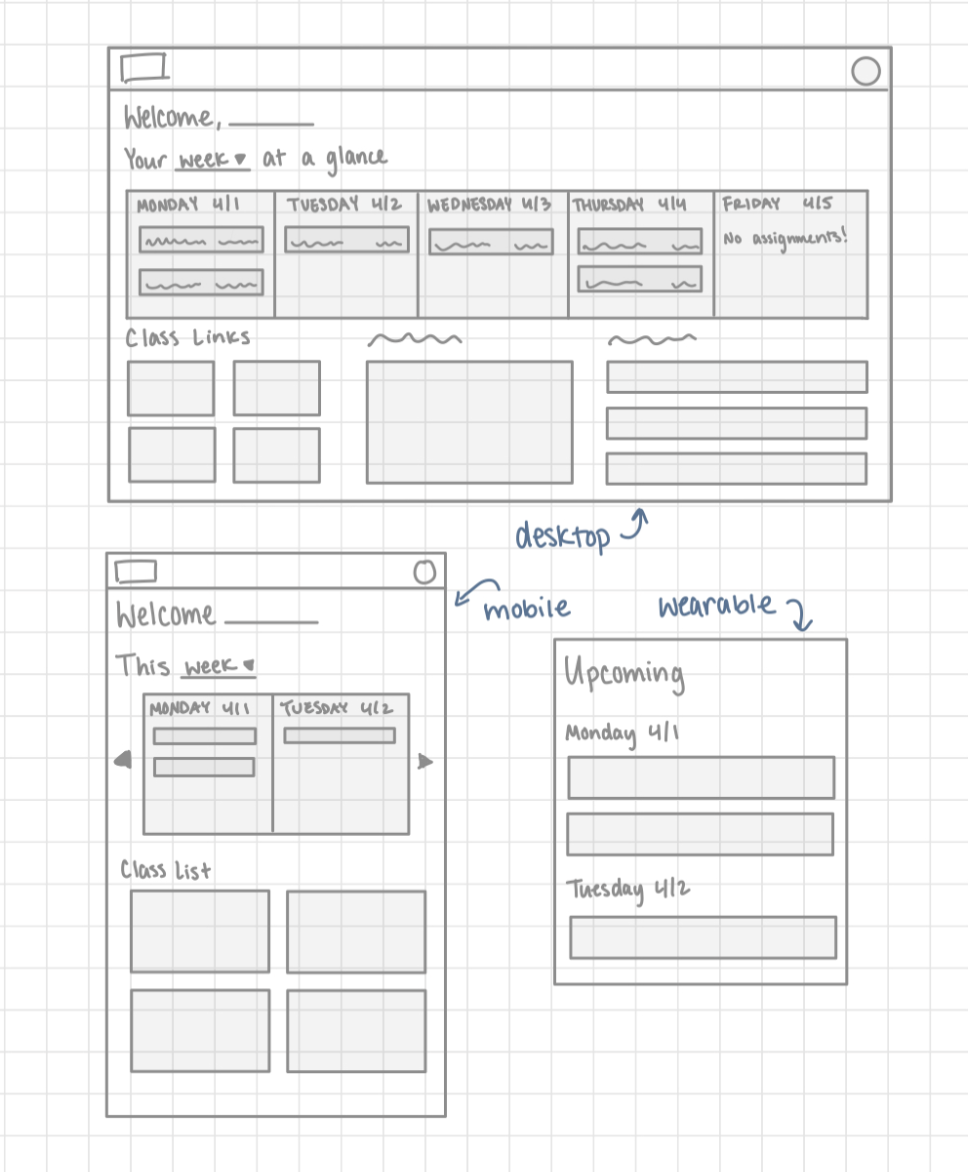 Welcome, ______
Your week ▾ at a glance
MONDAY 4/1 TUESDAY 4/2 WEDNESDAY 4/3 THURSDAY 4/4 FRIDAY 4/5
No assignments!
Class Links
desktop
mobile
wearable
Welcome ______
This week ▾
MONDAY 4/1 TUESDAY 4/2
Class List
Upcoming
Monday 4/1
Tuesday 4/2